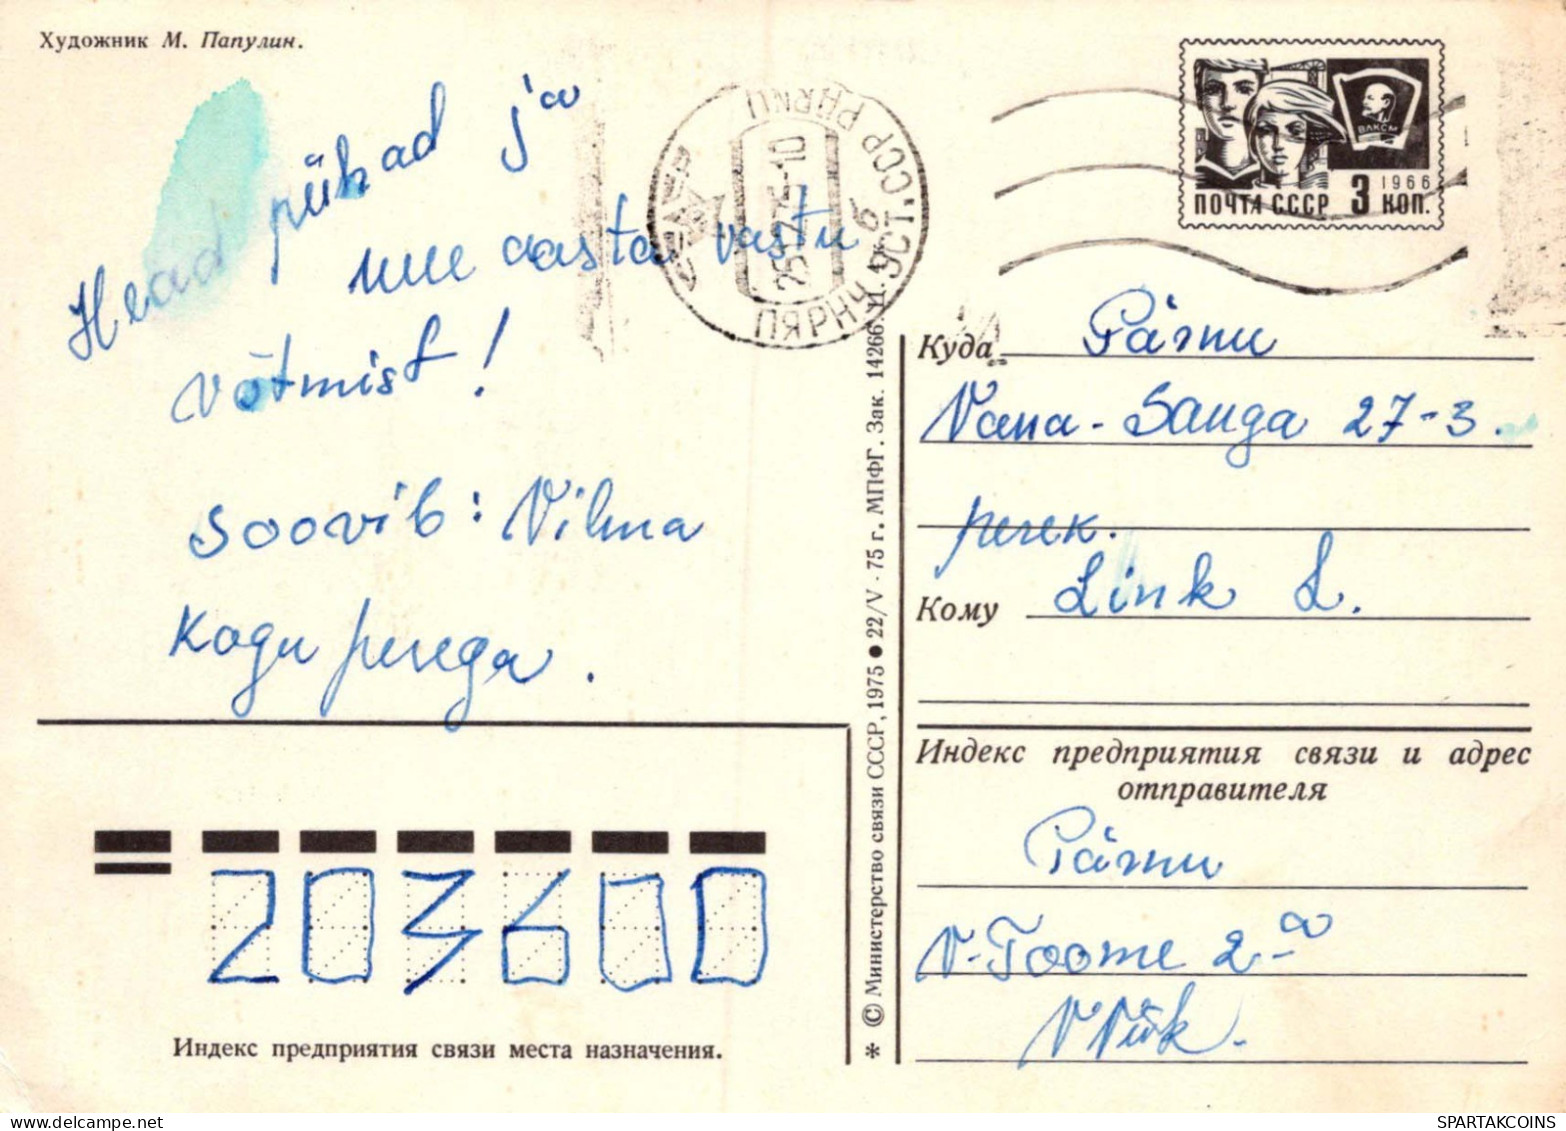 Художник М. Папулин.
Head pühad ja
uue aasta vastu
võtmist!
soovib: Vilma
kogu perega.
ПЯРНУ 6 ЭСТ.ССР PÄRNU
25 12 75-10
ПОЧТА СССР 3 КОП.
1966
ВЛКСМ
Куда Pärnu
Vana-Sauga 27-3.
perek.
Кому Link L.
Индекс предприятия связи и адрес
отправителя
Pärnu
V-Toome 2-a
V Viik.
203600
Индекс предприятия связи места назначения.
© Министерство связи СССР, 1975 ● 22/V - 75 г. МПФГ. Зак. 14266. Ц. 4 к.
*
SPARTAKCOINS